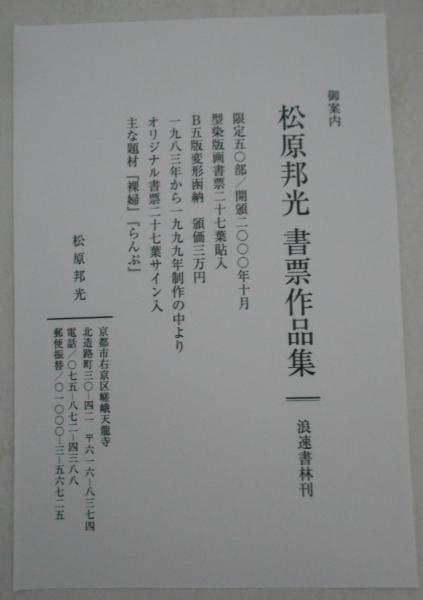 御案内
松原邦光 書票作品集
浪速書林刊
限定五〇部/開頒二〇〇〇年十月
型染版画書票二十七葉貼入
B五版変形函納 頒価三万円
一九八三年から一九九九年制作の中より
オリジナル書票二十七葉サイン入
主な題材『裸婦』『らんぷ』
松原邦光
京都市右京区嵯峨天龍寺
北造路町三〇−四二 〒六一六−八三七四
電話/〇七五−八七二−四三八八
郵便振替/〇一〇〇〇−三−五六七二五